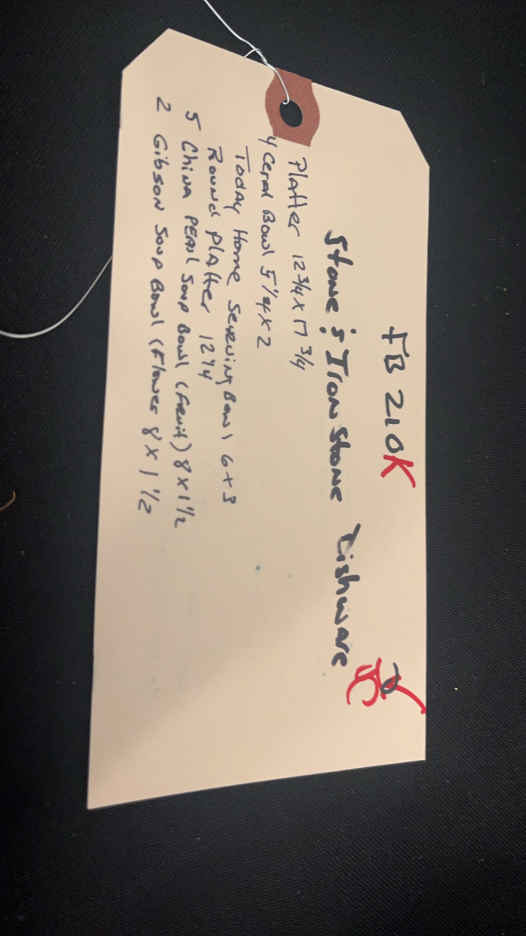 FB 210K
Stone & Iron Stone Dishware
Platter 12 3/4 x 17 3/4
4 Ceral Bowl 5 1/4 x 2
Today Home Serving Bowl 6 x 3
Round Platter 12 1/4
5 China PEARL Soup Bowl (Fruit) 8 x 1 1/2
2 Gibson Soup Bowl (Flower 8 x 1 1/2